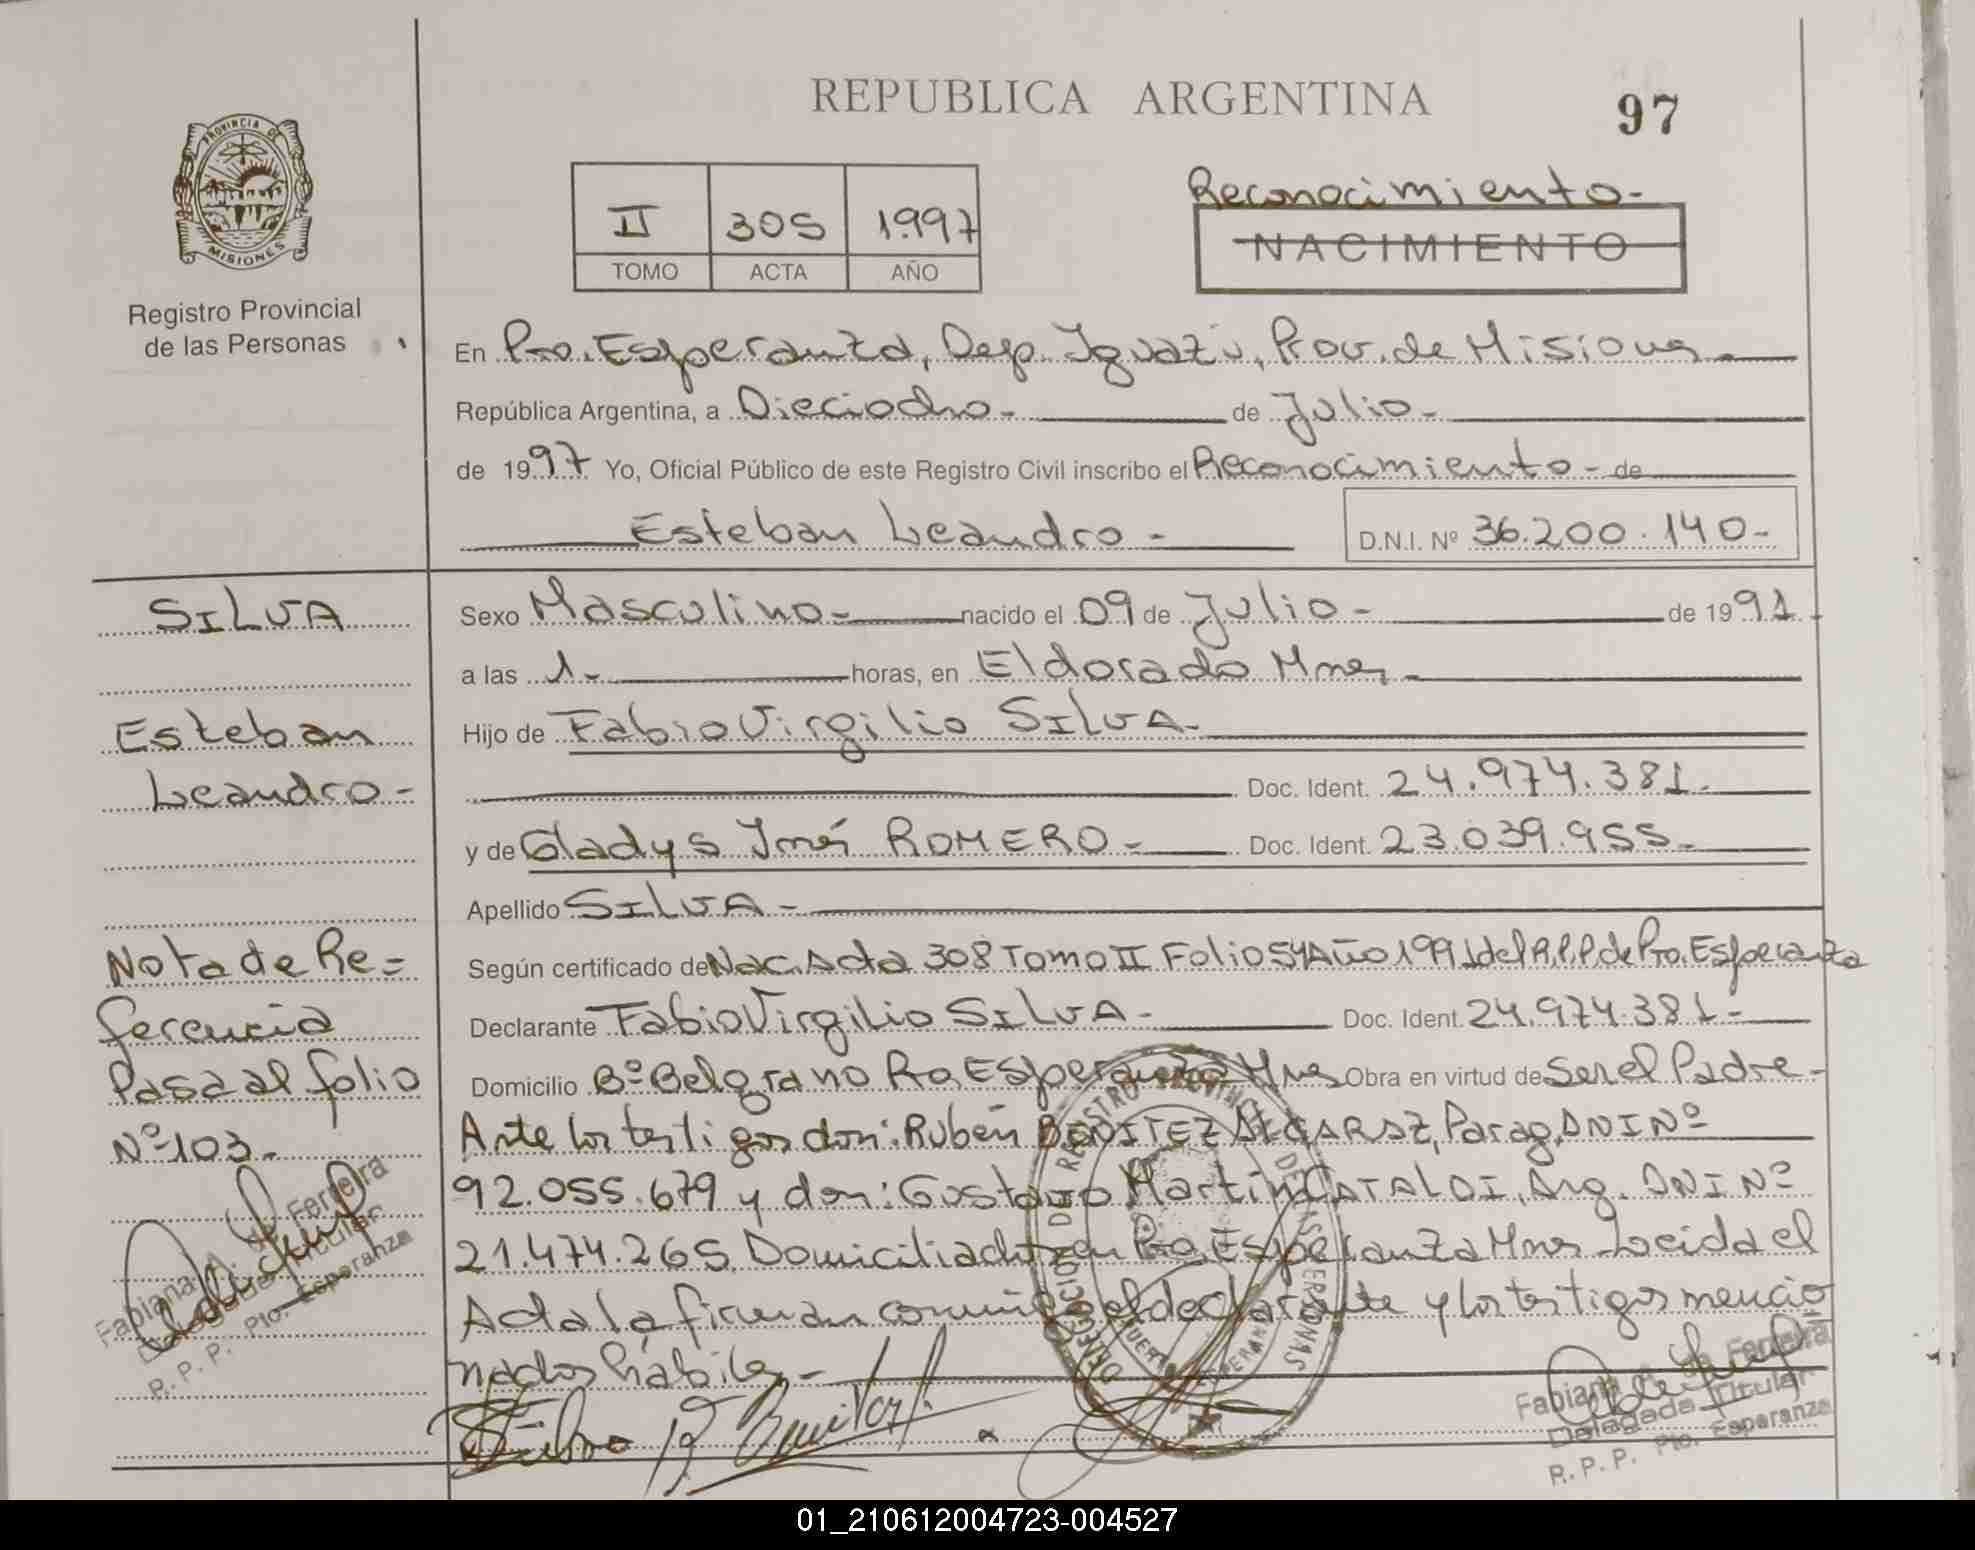 REPUBLICA ARGENTINA
97
PROVINCIA DE
MISIONES
Registro Provincial
de las Personas
II 305 1.997
TOMO ACTA AÑO
Reconocimiento-
NACIMIENTO
En Pto. Esperanza, Dep. Iguazú, Prov. de Misiones-
República Argentina, a Dieciocho- de Julio-
de 1997 Yo, Oficial Público de este Registro Civil inscribo el Reconocimiento- de
Esteban Leandro-
D.N.I. Nº 36.200.140-
SILVA
Esteban
Leandro-
Nota de Re=
ferencia
Pasa al folio
Nº 103-
Fabiana A. de Ferreira
Delegada Titular
R. P. P. Pto. Esperanza
Sexo Masculino- nacido el 09 de Julio- de 1991
a las 1- horas, en Eldorado Mnes-
Hijo de Fabio Virgilio SILVA-
Doc. Ident. 24.974.381-
y de Gladys Inés ROMERO- Doc. Ident. 23.039.955-
Apellido SILVA-
Según certificado de Nac. Acta 308 Tomo II Folio 54 Año 1991 del R.P.P. de Pto. Esperanza
Declarante Fabio Virgilio SILVA- Doc. Ident 24.974.381-
Domicilio Bº Belgrano Pto. Esperanza Mnes Obra en virtud de Ser el Padre-
Ante los testigos don: Rubén BENITEZ ALCARAZ, Parag. DNI Nº
92.055.679 y don: Gustavo Martin CATALDI, Arg. DNI Nº
21.474.265 Domiciliados en Pto. Esperanza Mnes Leida el
Acta la firman conmigo el declarante y los testigos mencio
nados hábiles-
Fabiana A. de Ferreira
Delegada Titular
R. P. P. Pto. Esperanza
01_210612004723-004527